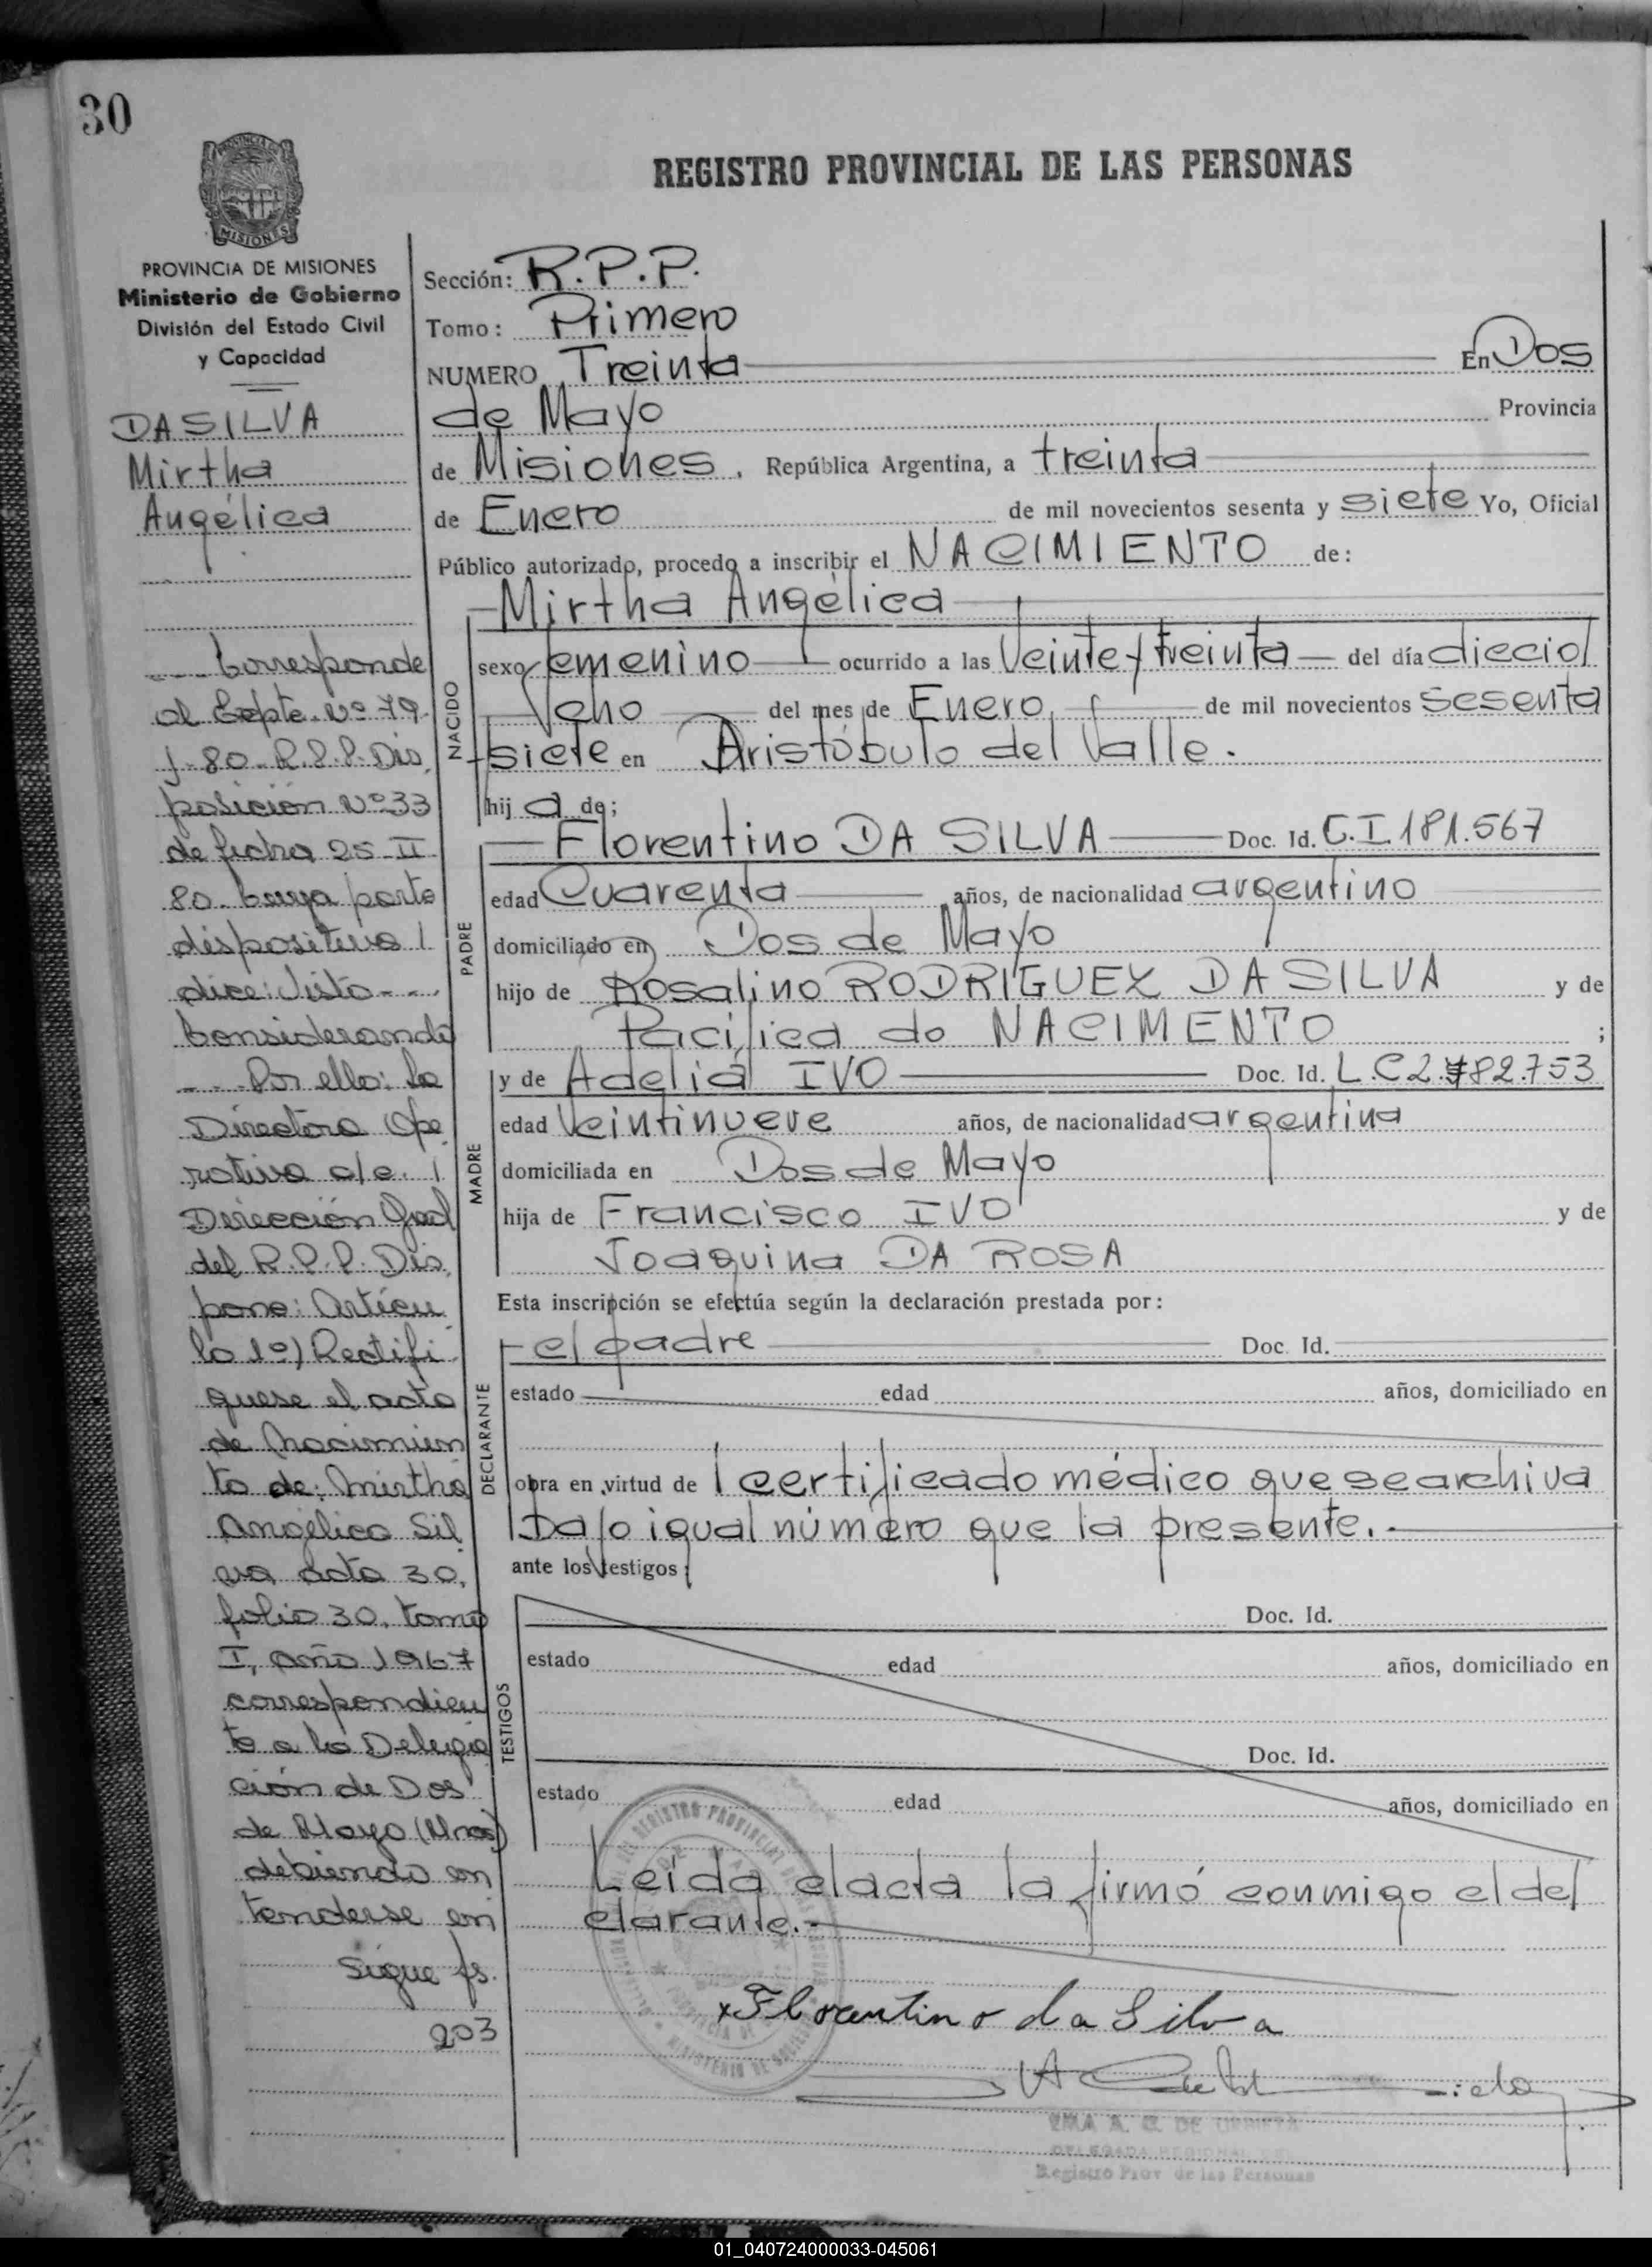 30
PROVINCIA DE
MISIONES
REGISTRO PROVINCIAL DE LAS PERSONAS
PROVINCIA DE MISIONES
Ministerio de Gobierno
División del Estado Civil
y Capacidad
DA SILVA
Mirtha
Angélica
Corresponde
al Expte. Nº 79
J-80-R.P.P. Dis
posición Nº 33
de fecha 25-II
80. Cuya parte
dispositiva
dice: Visto---
Considerando
--- Por ello: La
Directora Ope
rativa a/c.
Dirección Gral
del R.P.P. Dis
pone: Artícu
lo 1º) Rectifi
quese el acta
de Nacimien
to de: Mirtha
Angélica Sil
va, acta 30,
folio 30, tomo
I, año 1967
correspondien
te a la Delega
ción de Dos
de Mayo (Mnes)
debiendo en
tenderse en
Sigue fs.
203
Sección: R.P.P.
Tomo: Primero
NUMERO Treinta En Dos
de Mayo Provincia
de Misiones, República Argentina, a treinta
de Enero de mil novecientos sesenta y siete Yo, Oficial
Público autorizado, procedo a inscribir el NACIMIENTO de:
NACIDO
Mirtha Angélica
sexo femenino ocurrido a las Veinte y treinta del día dieci
ocho del mes de Enero de mil novecientos sesenta
siete en Aristóbulo del Valle.
hija de;
PADRE
Florentino DA SILVA Doc. Id. C.I. 181.567
edad Cuarenta años, de nacionalidad argentino
domiciliado en Dos de Mayo
hijo de Rosalino RODRIGUEZ DA SILVA y de
Pacífica do NACIMENTO ;
MADRE
y de Adelia IVO Doc. Id. L.C 2.782.753
edad Veintinueve años, de nacionalidad argentina
domiciliada en Dos de Mayo
hija de Francisco IVO y de
Joaquina DA ROSA
Esta inscripción se efectúa según la declaración prestada por:
DECLARANTE
el padre Doc. Id.
estado edad años, domiciliado en
obra en virtud de l certificado médico que se archiva
bajo igual número que la presente.
ante los testigos:
TESTIGOS
Doc. Id.
estado edad años, domiciliado en
Doc. Id.
estado edad años, domiciliado en
Leída el acta la firmó conmigo el de
clarante.-
x Florentino da Silva
DELEGADA REGIONAL
Registro Prov de las Personas
01_040724000033-045061